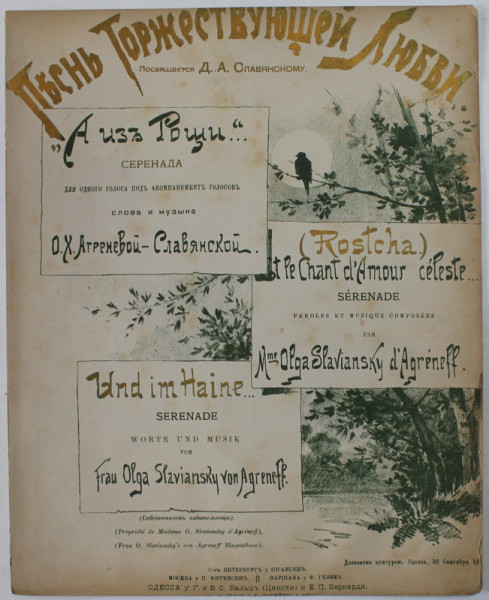 Пѣснь Торжествующей Любви
Посвящается Д. А. Славянскому.
„А изъ Рощи...“
СЕРЕНАДА
ДЛЯ ОДНОГО ГОЛОСА ПОДЪ АКОМПАНЕМЕНТЪ ГОЛОСОВЪ
СЛОВА И МУЗЫКА
О.Х. Агреневой-Славянской.
(Rostcha)
Et le Chant d'Amour céleste...
SÉRENADE
PAROLES ET MUSIQUE COMPOSÉES
PAR
Mme Olga Slaviansky d'Agréneff.
Und im Haine...
SERENADE
WORTE UND MUSIK
VON
Frau Olga Slaviansky von Agreneff.
(Собственность издательницы).
(Propriété de Madame O. Slaviansky d'Agréneff),
(Frau O. Slaviansky's von Agreneff Eingenthum).
Дозволено цензурою. Одесса, 30 Сентября 18
С-ПЕТЕРБУРГЪ у ЮГАНСЕНЪ.
МОСКВА у П. ЮРГЕНСОНЪ. ВАРШАВА у Ф. ГЕЗИКЪ.
ОДЕССА у Г. и В. С. Бальцъ (Цанотти) и Е. П. Бернарди.